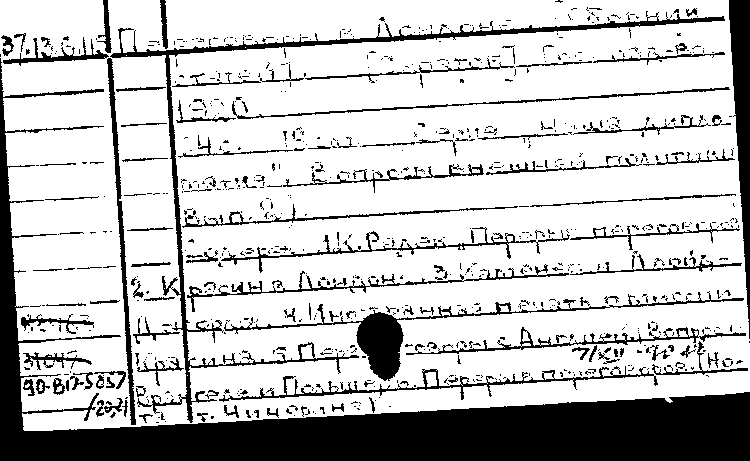 37.13.6.115 Переговоры в Лондоне. [Сборник
статей]. [Саратов], Гос. изд-во,
1920.
18 см. Серия „Наша дипло-
матия". Вопросы внешней политики
Вып. 2).
Содерж. 1. К. Радек „Перерыв переговоров
2. Красин в Лондоне. 3. Каменев и Ллойд-
Джордж. 4. Иностранная печать о миссии
31047 Красина. 5. Переговоры с Англией (Вопросы
90-В17-5857 Врангеля и Польши). Перерыв переговоров. (Но-
/20,21 та т. Чичерина)